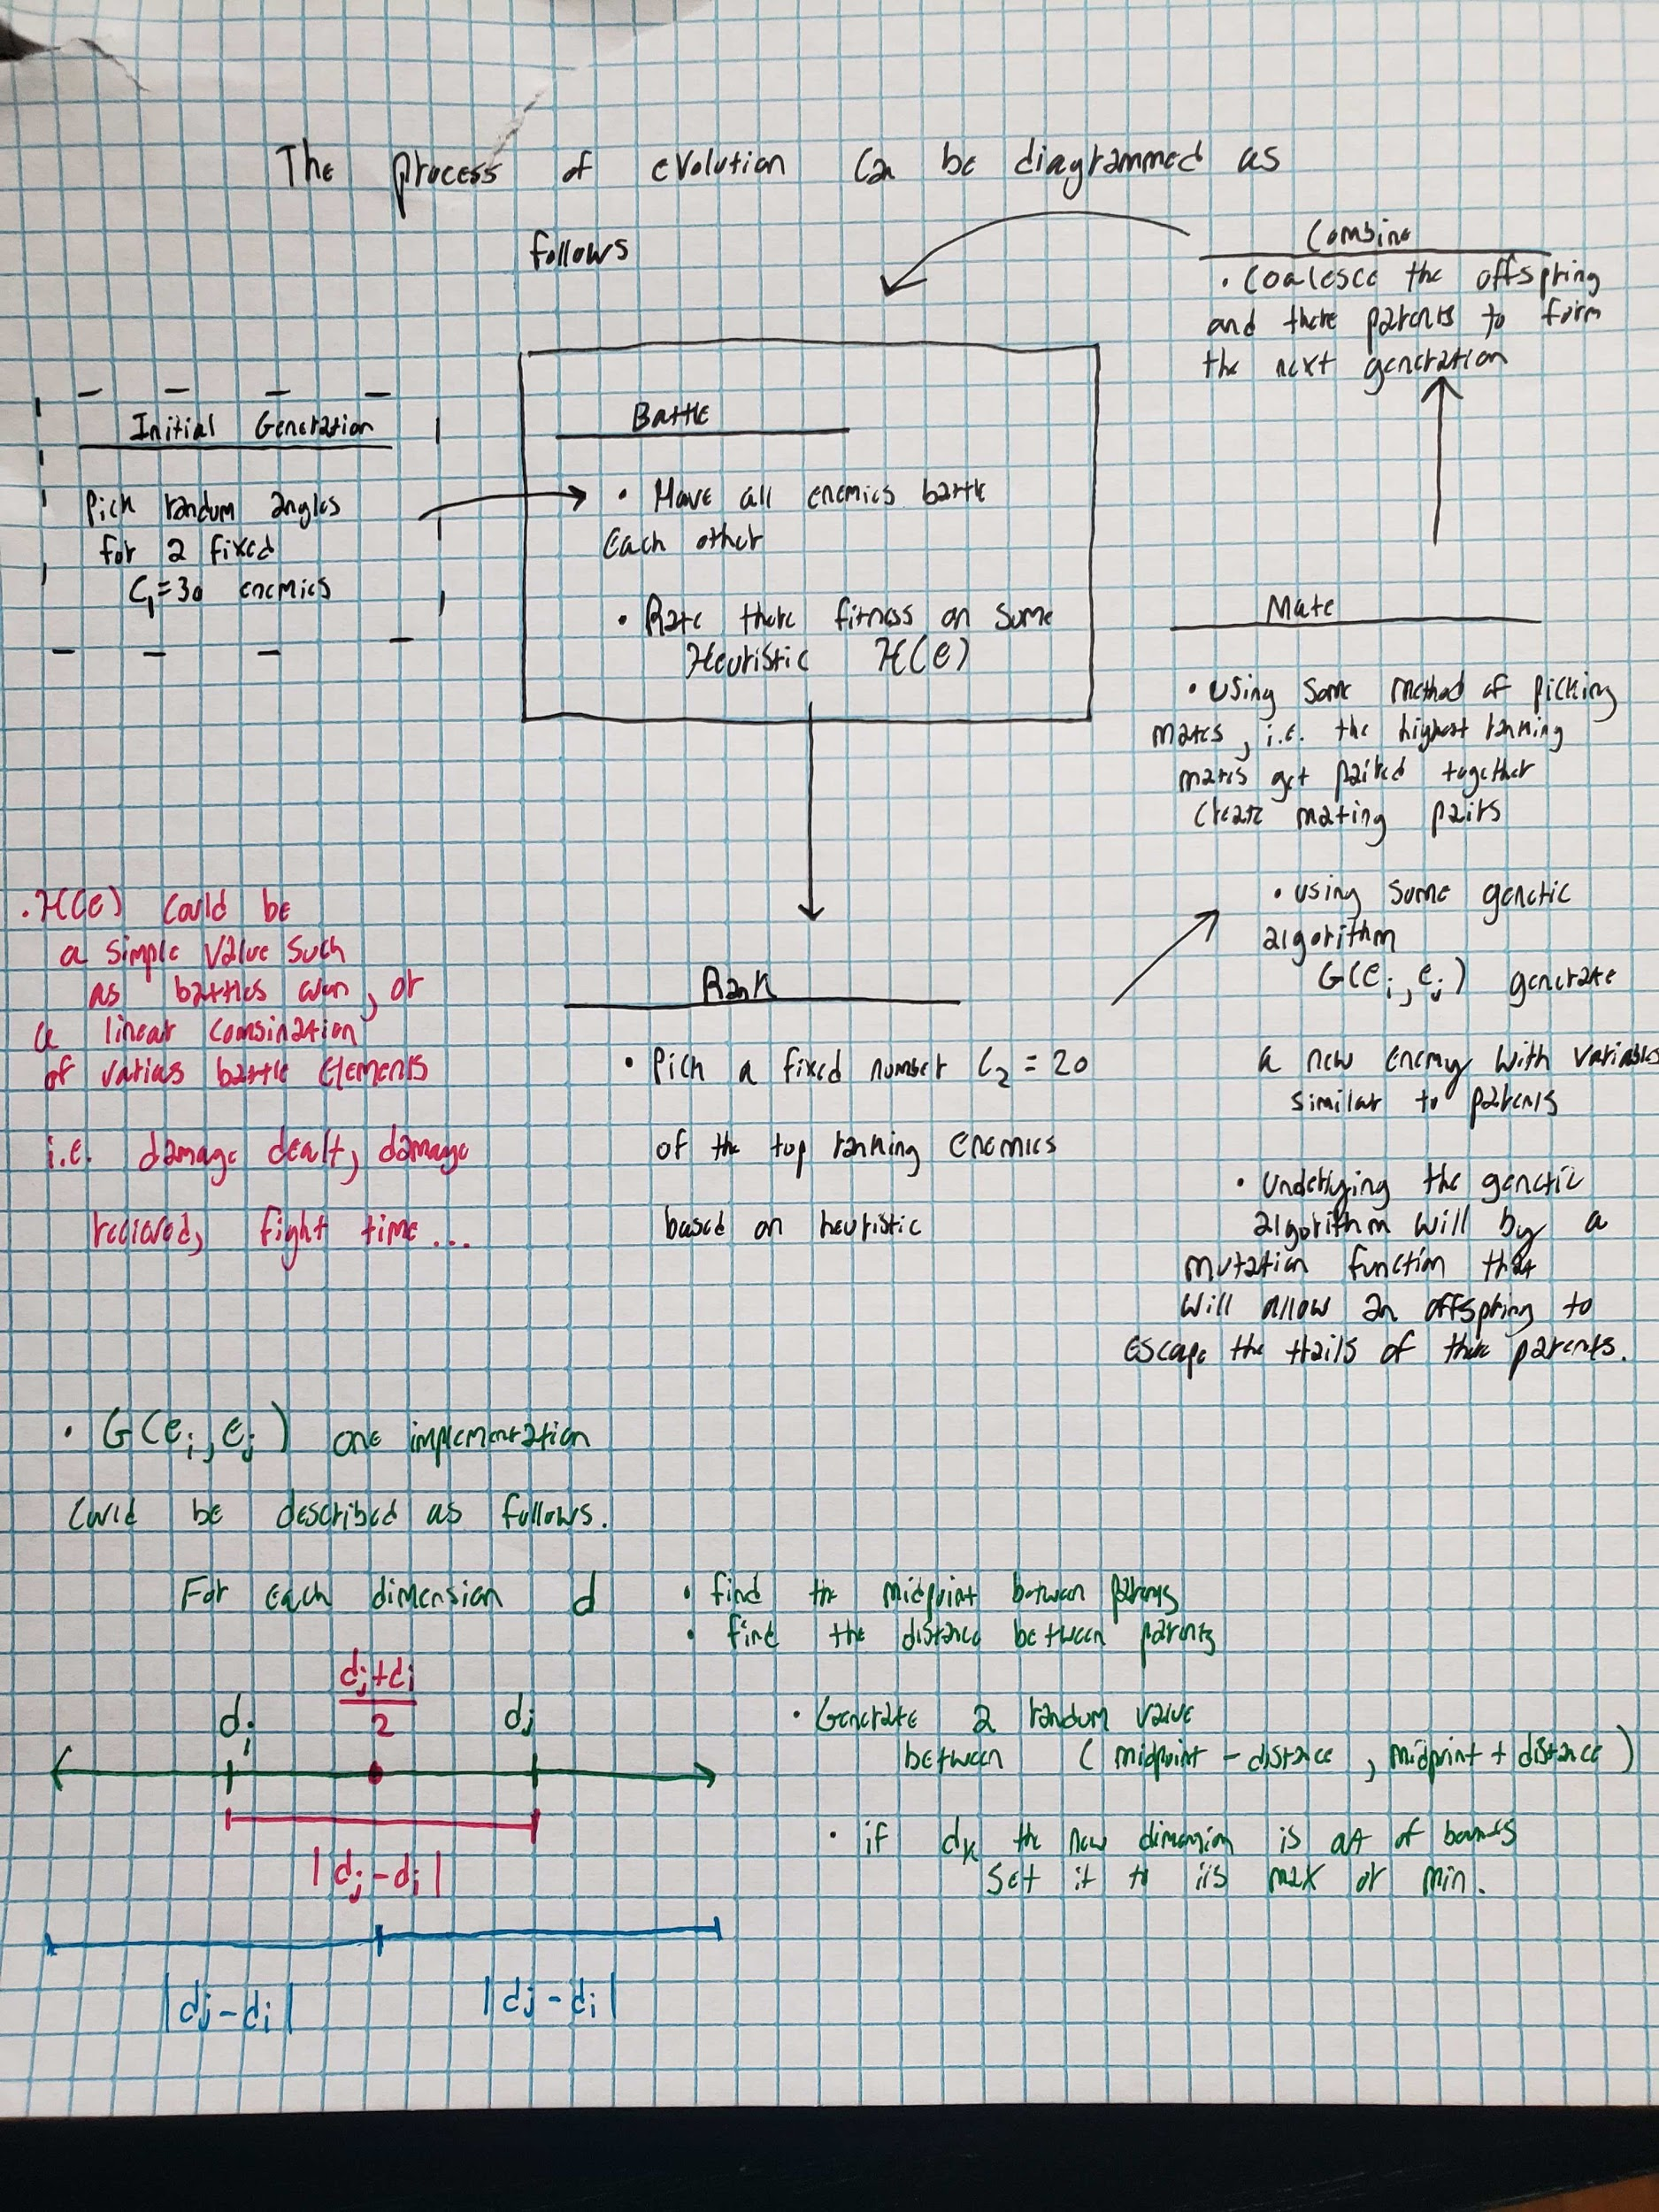 The process of evolution can be diagrammed as
follows
Combine
• Coalesce the offspring
and there parents to form
the next generation
Initial Generation
Pick random angles
for a fixed
C₁=30 enemies
Battle
• Have all enemies battle
Each other
• Rate there fitness on some
Heuristic H(e)
Mate
• using some method of picking
mates, i.e. the highest ranking
mates get paired together
create mating pairs
• using some genetic
algorithm
G(eᵢ, eⱼ) generate
a new enemy with variables
similar to parents
• Underlying the genetic
algorithm will by a
mutation function that
will allow an offspring to
escape the traits of there parents.
• H(e) could be
a simple value such
as battles won, or
a linear combination
of various battle elements
i.e. damage dealt, damage
recieved, fight time...
Rank
• Pick a fixed number C₂ = 20
of the top ranking enemies
based on heuristic
• G(eᵢ, eⱼ) one implementation
could be described as follows.
For each dimension d
• find the midpoint between parents
• find the distance between parents
• Generate a random value
between (midpoint - distance, midpoint + distance)
• if dₖ the new dimension is out of bounds
set it to its max or min.
dⱼ+dᵢ
2
dᵢ
dⱼ
|dⱼ-dᵢ|
|dⱼ-dᵢ|
|dⱼ-dᵢ|